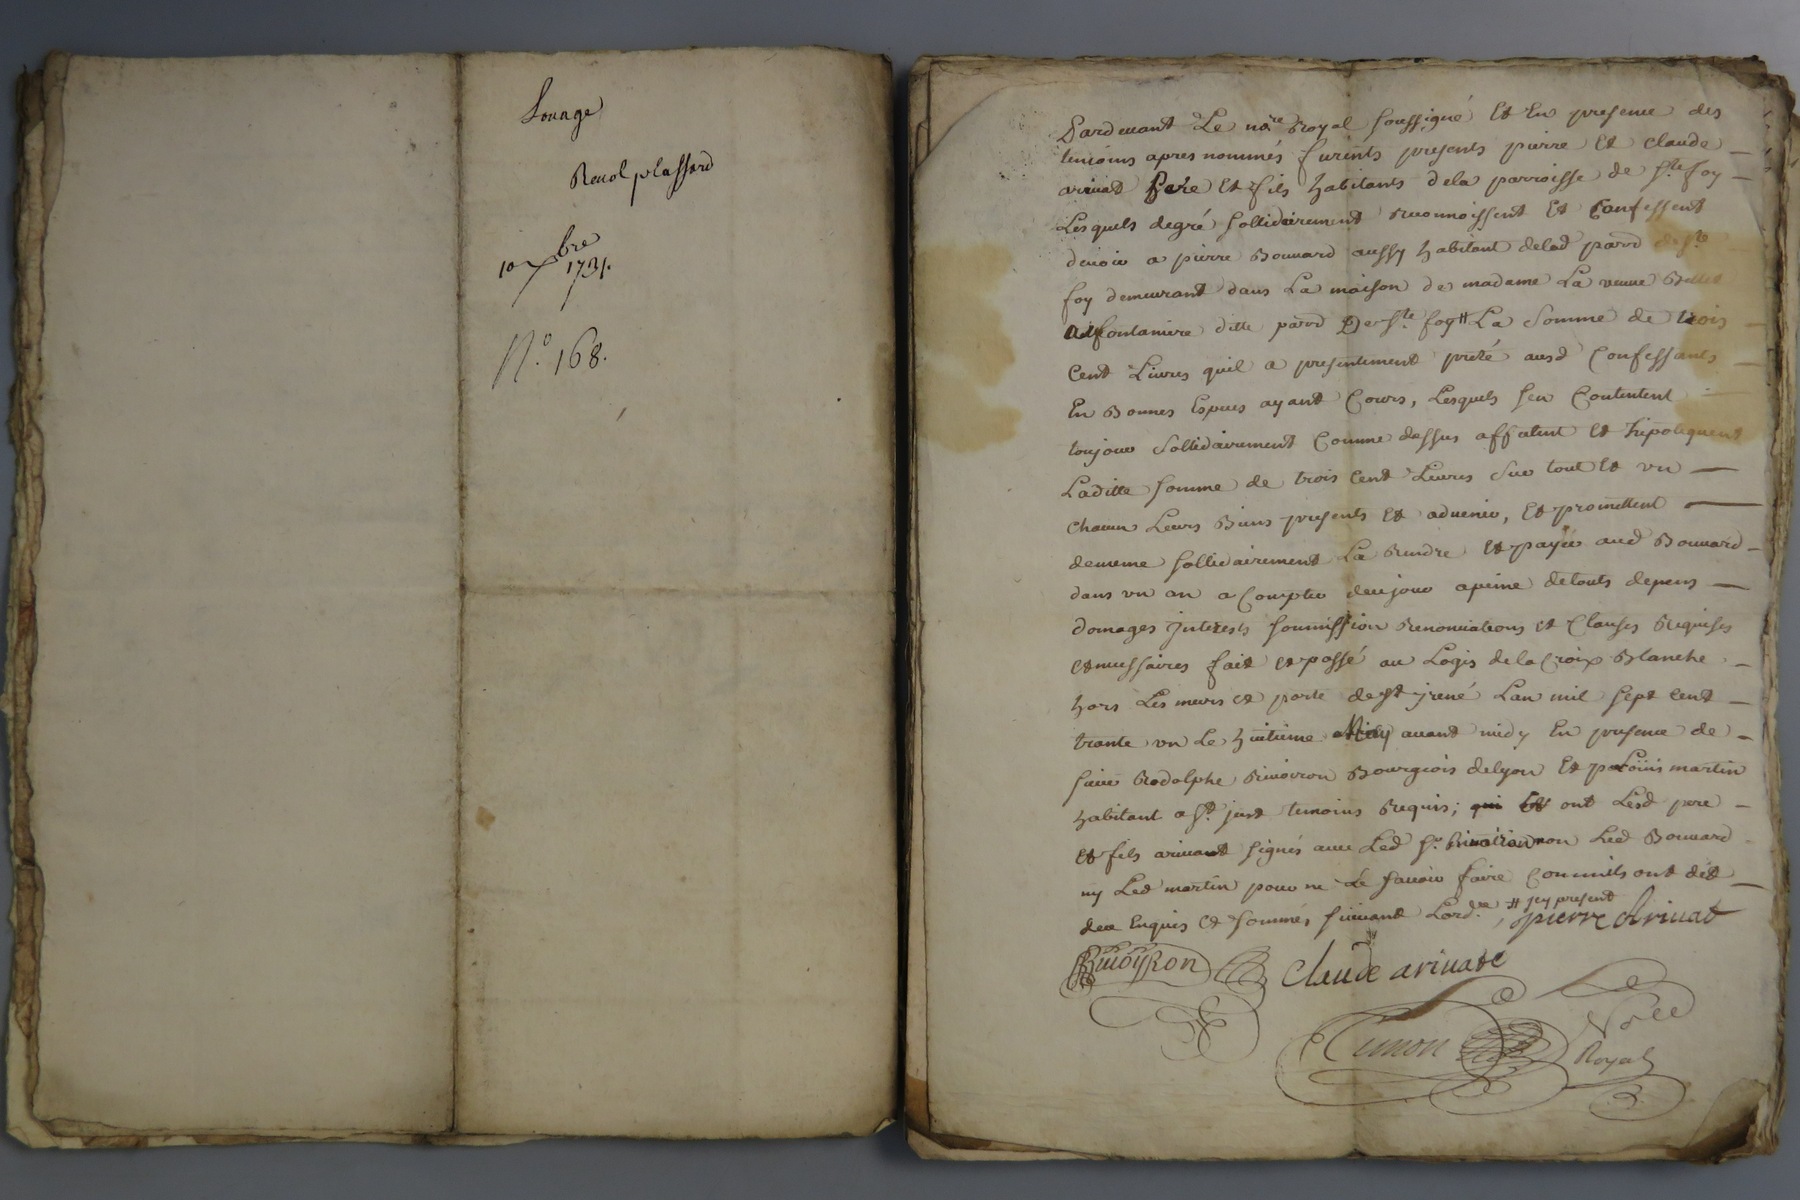 Louage
Revol plassard
10 xbre
1731.
N.o 168.
Pardeuant Le nore Royal soussigné Et En presence des
temoins apres nommés furents presents pierre Et claude
ariuat Pere Et fils habitants dela parroisse de ste foy
Lesquels degré sollidairement reconnoissent Et Confessent
deuoir a pierre Bouuard aussy habitant delad parr de ste
foy demeurant dans La maison de madame La veuue
fontaniere ditte parr De ste foy # La Somme de trois
Cent Liures quil a presentement preté ausd Confessants
En Bonnes Especes ayant Cours, Lesquels sen Contentent
toujour Sollidairement Comme dessus affattent Et hipotequent
Laditte somme de trois Cent Liures Sur tout Et vn
chacun Leurs Biens presents Et aduenir, Et promettent
dememe sollidairement La Rendre Et payer aud Bouuard
dans vn an a Compter decejour apeine detouts depens
domages Interests soumission Renonciations et Clauses Requises
etnecessaires fait et passé au Logis de la Croix Blanche
hors Les murs et porte de st jrené Lan mil sept Cent
trante vn Le huitieme May auant midy En presence de
sieur Rodolphe Riuoiron Bourgeois delyon Et Loüis martin
habitant a st just temoins Requis; ont Lesd pere
et fils ariuat signés auec Led sr Riuoiron non Led Bouuard
ny Led martin pour ne Le sauoir faire Commils ont dit
dece Enquis et sommés suiuant Lord.ce, # jcy present
pierre Ariuat
Riuoyron claude ariuate
Noree
Royal